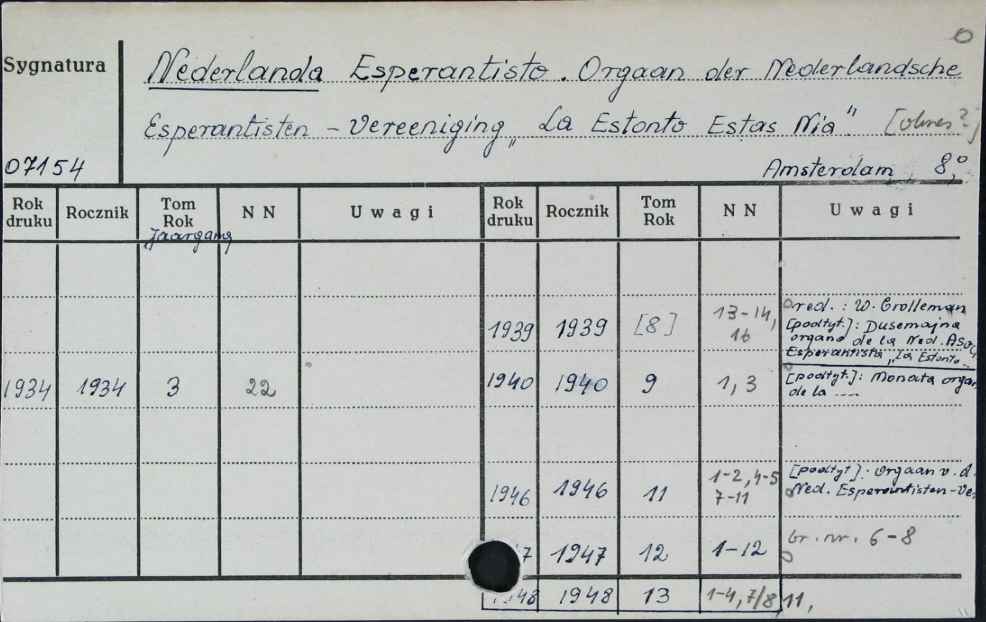 Sygnatura
Nederlanda Esperantisto. Orgaan der Nederlandsche
Esperantisten - Vereeniging „La Estonto Estas Nia".
07154
Amsterdam 8°
Rok druku Rocznik Tom Rok N N Uwagi Rok druku Rocznik Tom Rok N N Uwagi
Jaargang
1939 1939 [8] 13-14, 16 red.: W. Grolleman
[podtyt.]: Dusemajna
organo de la Ned. Asoc.
Esperantista „La Estonto..
1934 1934 3 22 1940 1940 9 1, 3 [podtyt.]: Monata organ
de la ....
1946 1946 11 1-2, 4-5 7-11 [podtyt]: Orgaan v. d.
Ned. Esperantisten-Ve
7 1947 12 1-12 br. nr. 6-8
1948 1948 13 1-4, 7/8, 11,